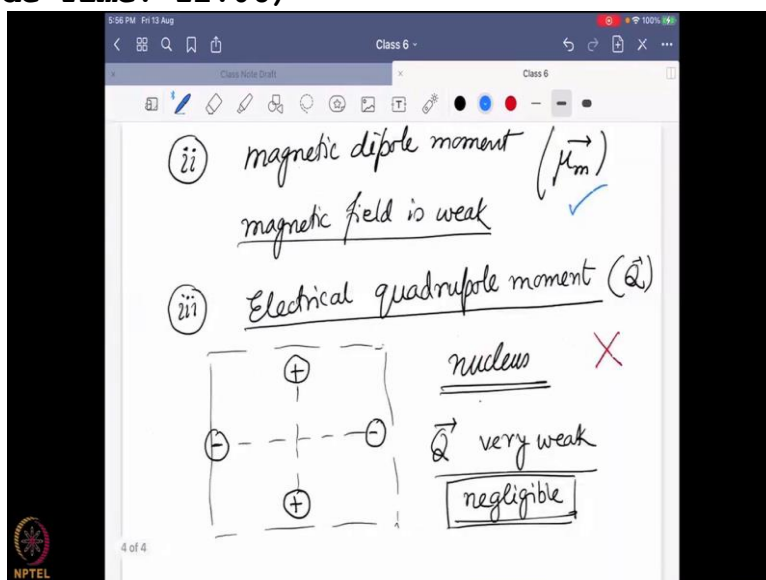 5:56 PM Fri 13 Aug
100%
Class 6
Class Note Draft
Class 6
ii magnetic dipole moment (μm)
magnetic field is weak
iii Electrical quadrupole moment (Q)
nucleus
Q very weak
negligible
4 of 4
NPTEL